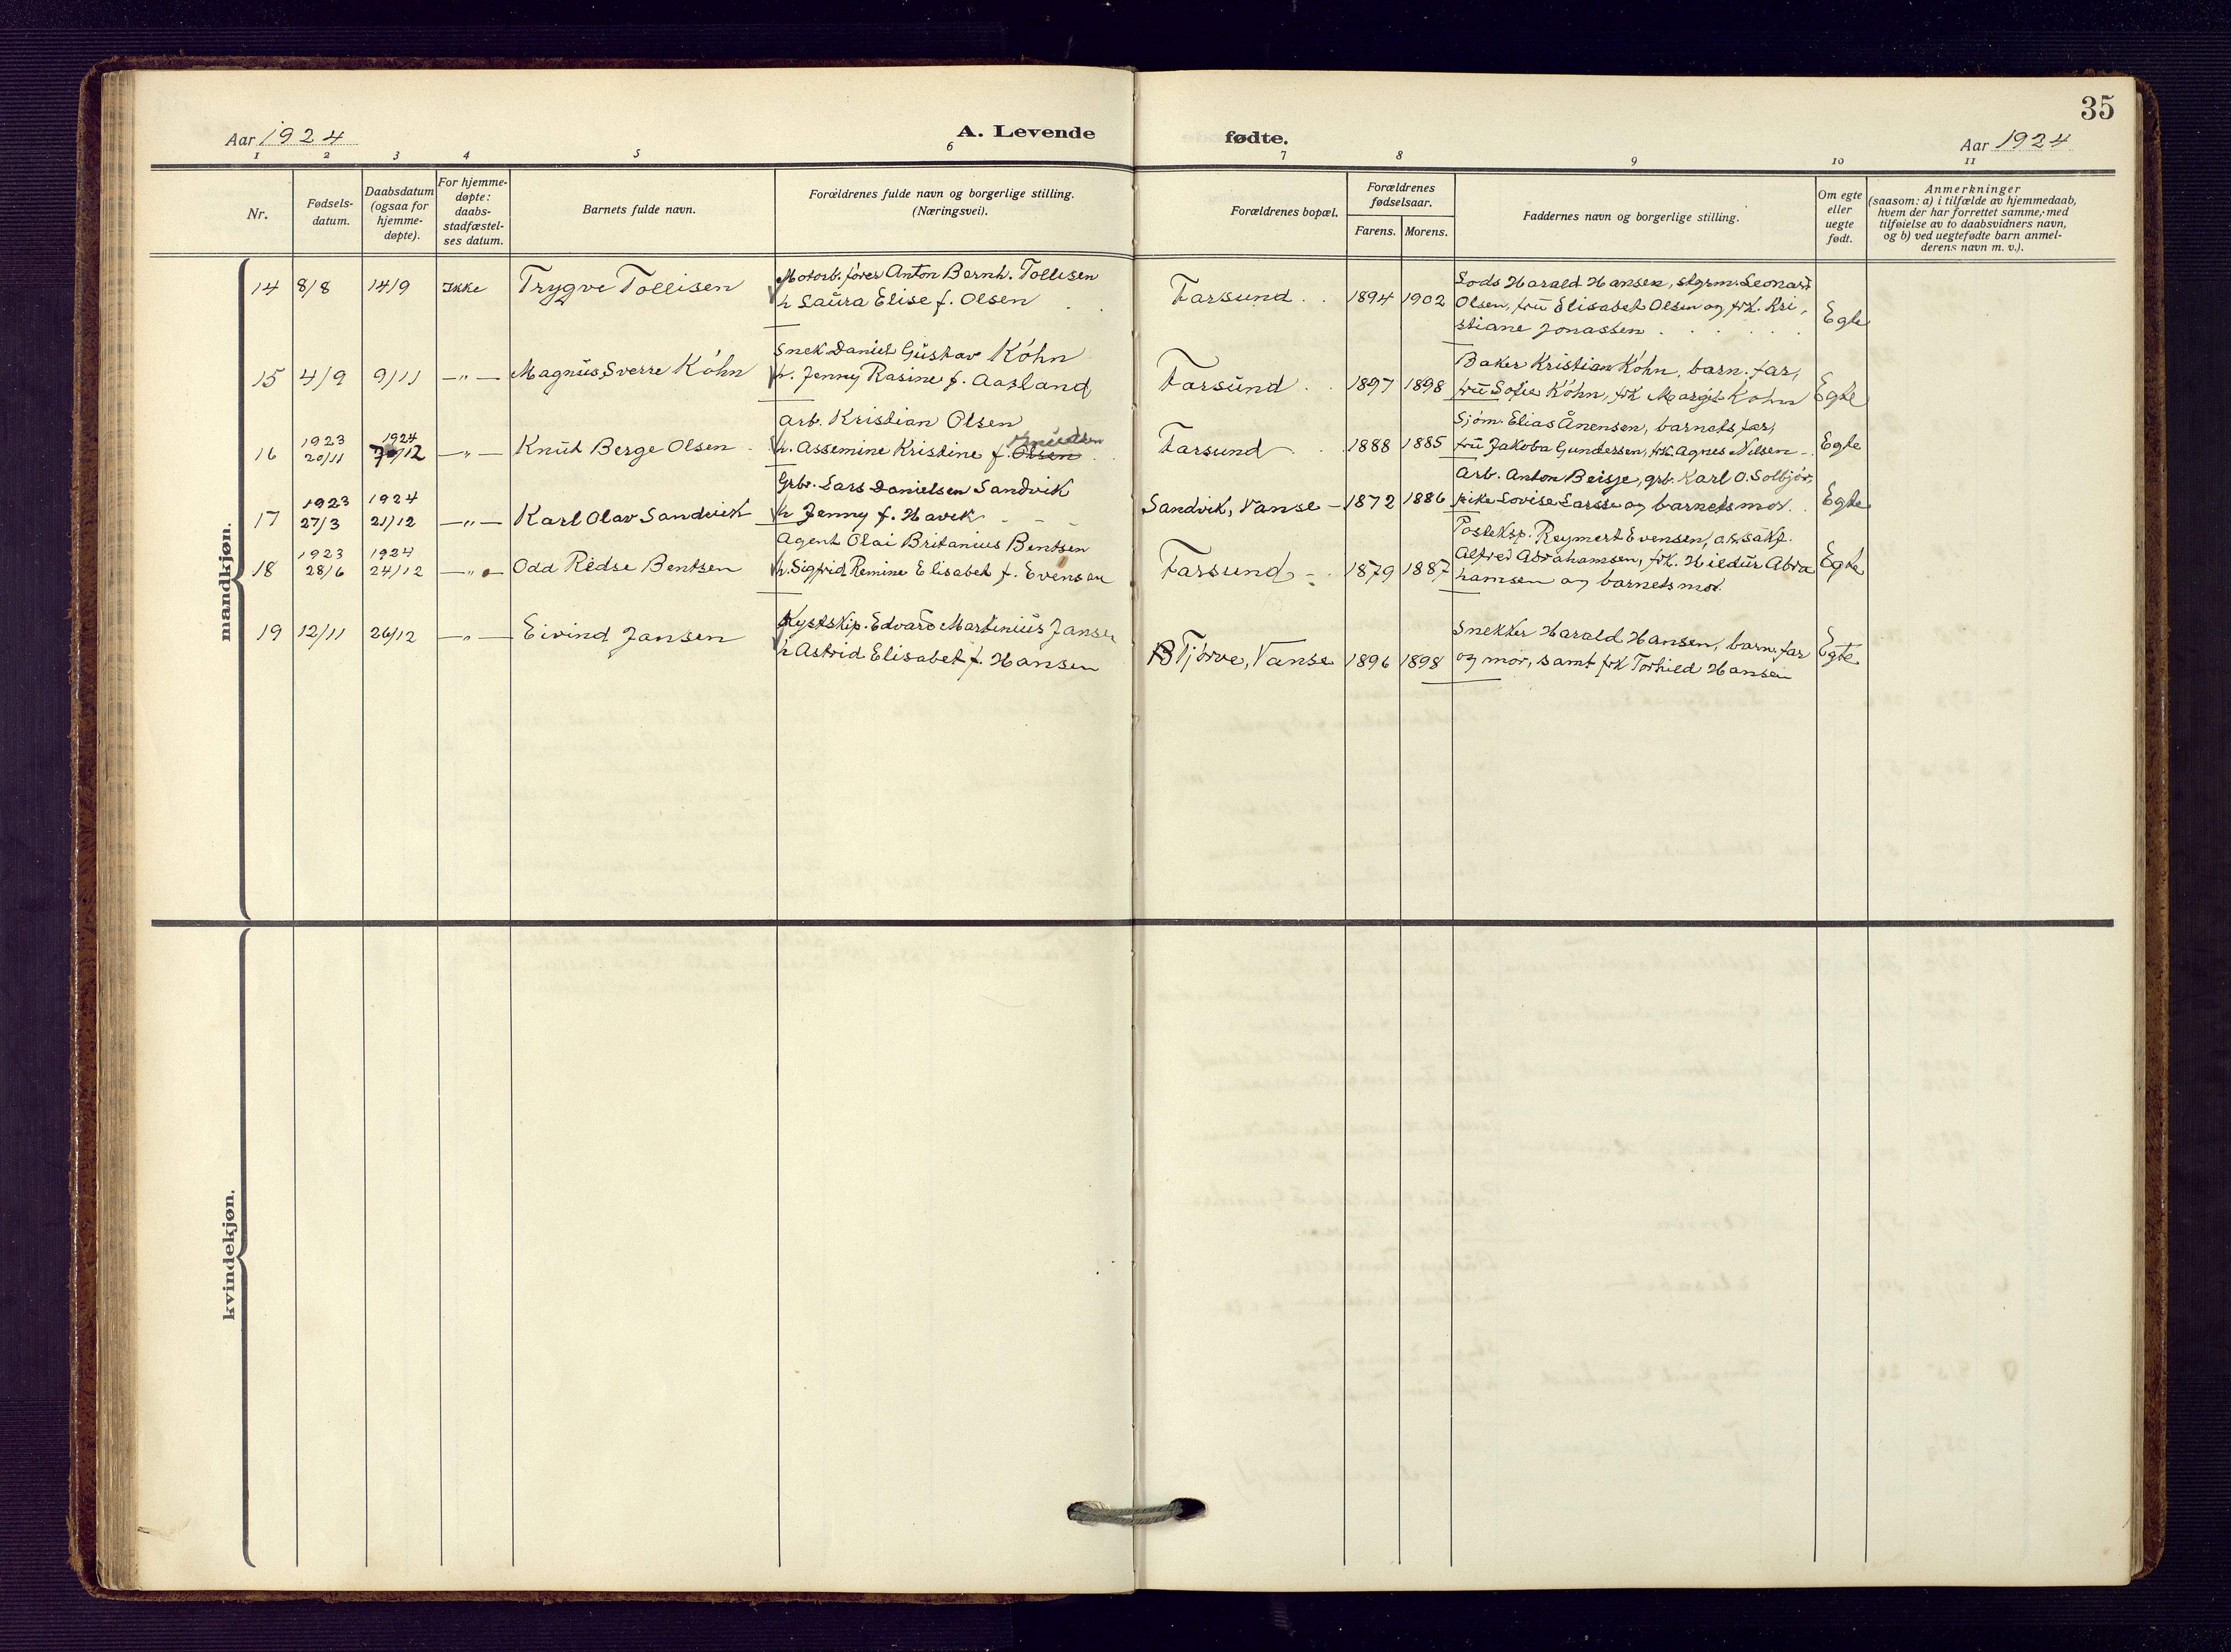 35
Aar 1924
A. Levende
fødte.
Aar 1924
1 2 3 4 5 6 7 8 9 10 11
Nr.
Fødsels-
datum.
Daabsdatum
(ogsaa for
hjemme-
døpte).
For hjemme-
døpte:
daabs-
stadfæstel-
ses datum.
Barnets fulde navn.
Forældrenes fulde navn og borgerlige stilling.
(Næringsvei).
Forældrenes bopæl.
Forældrenes
fødselsaar.
Farens. Morens.
Faddernes navn og borgerlige stilling.
Om egte
eller
uegte
født.
Anmerkninger
(saasom: a) i tilfælde av hjemmedaab,
hvem der har forrettet samme, med
tilføielse av to daabsvidners navn,
og b) ved uegtefødte barn anmel-
derens navn m. v.).
mandkjøn.
14 8/8 14/9 Ikke Trygve Tollisen
Motorb.fører Anton Bernh. Tollisen
h Laura Elise f. Olsen
Farsund 1894 1902
Lods Harald Hansen, stgrm. Leonard
Olsen, fru Elisabet Olsen og frk. Kri-
stiane Jonassen
Egte
15 4/9 9/11 —"— Magnus Sverre Köhn
Snek. Daniel Gustav Köhn
h. Jenny Rasine f. Aasland
Farsund 1897 1898
Baker Kristian Köhn, barn. far,
fru Sofie Köhn, frk Margit Köhn
Egte
16 1923 20/11 1924 7/12 —"— Knut Berge Olsen
Arb. Kristian Olsen
h. Assemine Kristine f. Olsen Knudsen
Farsund 1888 1885
Sjøm. Elias Ånensen, barnets far,
fru Jakoba Gundersen, frk. Agnes Nilsen
Egte
17 1923 27/3 1924 21/12 —"— Karl Olav Sandvik
Grbr. Lars Danielsen Sandvik
h Jenny f. Havik
Sandvik, Vanse 1872 1886
Arb. Anton Beisje, grb. Karl O. Solbjør,
pike Lovise Larsse og barnets mor.
Egte
18 1923 28/6 1924 24/12 —"— Odd Ridse Bentsen
Agent Olai Britanius Bentsen
h. Sigfrid Remine Elisabet f. Evensen
Farsund 1879 1887
Posteksp. Reymert Evensen, o.r.sakf.
Alfred Abrahamsen, frk. Hildur Abra
hamsen og barnets mor.
Egte
19 12/11 26/12 —"— Eivind Jansen
Kystskip. Edvard Martinius Jansen
h Astrid Elisabet f. Hansen
Tjørve, Vanse 1896 1898
Snekker Harald Hansen, barn. far
og mor, samt frk Torhild Hansen
Egte
kvindekjøn.